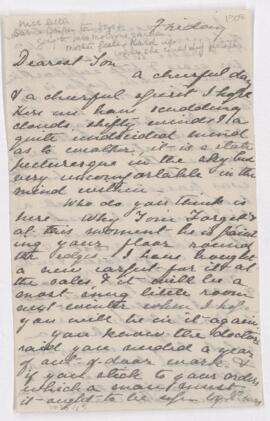 nice letter
Friday
Dearest Son
a cheerful day
& a cheerful spirit I hope
Here we have scudding
clouds, shifty winds, & a
quite undecided mind
as to weather. it is a state
picturesque in the sky but
very uncomfortable in the
mind within.
Who do you think is
here Why Tom Forget &
at this moment he is paint
ing your floor round
the edges. I have bought
a new carpet for it at
the sales, & it will be a
most snug little room
next winter when I hope
you will be in it again
You know the doctors
said you needed a year
of out-of-door work &
if you stick to your orders
which a man must
it ought to be